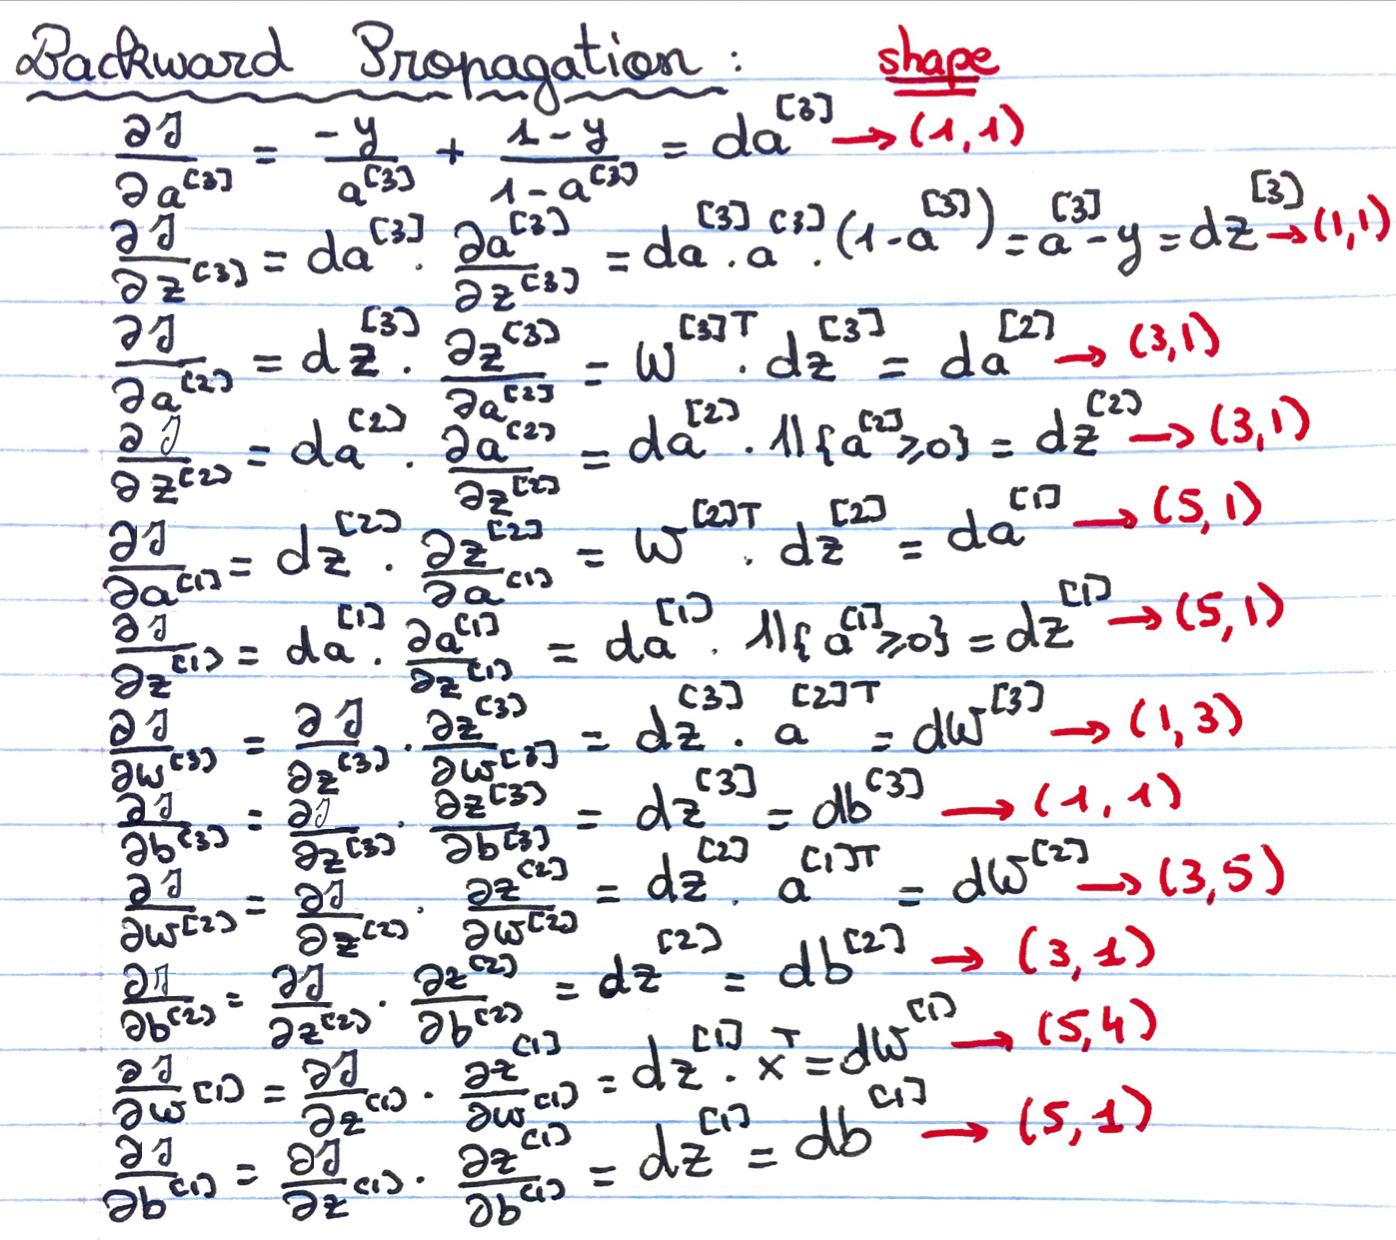 Backward Propagation : shape
∂J/∂a^[3] = -y/a^[3] + 1-y/1-a^[3] = da^[3] → (1,1)
∂J/∂z^[3] = da^[3] . ∂a^[3]/∂z^[3] = da^[3] . a^[3] . (1-a^[3]) = a^[3] - y = dz^[3] → (1,1)
∂J/∂a^[2] = dz^[3] . ∂z^[3]/∂a^[2] = W^[3]T . dz^[3] = da^[2] → (3,1)
∂J/∂z^[2] = da^[2] . ∂a^[2]/∂z^[2] = da^[2] . 𝟙{a^[2] ⩾ 0} = dz^[2] → (3,1)
∂J/∂a^[1] = dz^[2] . ∂z^[2]/∂a^[1] = W^[2]T . dz^[2] = da^[1] → (5,1)
∂J/∂z^[1] = da^[1] . ∂a^[1]/∂z^[1] = da^[1] . 𝟙{a^[1] ⩾ 0} = dz^[1] → (5,1)
∂J/∂W^[3] = ∂J/∂z^[3] . ∂z^[3]/∂W^[3] = dz^[3] . a^[2]T = dW^[3] → (1,3)
∂J/∂b^[3] = ∂J/∂z^[3] . ∂z^[3]/∂b^[3] = dz^[3] = db^[3] → (1,1)
∂J/∂W^[2] = ∂J/∂z^[2] . ∂z^[2]/∂W^[2] = dz^[2] . a^[1]T = dW^[2] → (3,5)
∂J/∂b^[2] = ∂J/∂z^[2] . ∂z^[2]/∂b^[2] = dz^[2] = db^[2] → (3,1)
∂J/∂W^[1] = ∂J/∂z^[1] . ∂z^[1]/∂W^[1] = dz^[1] . x^T = dW^[1] → (5,4)
∂J/∂b^[1] = ∂J/∂z^[1] . ∂z^[1]/∂b^[1] = dz^[1] = db^[1] → (5,1)